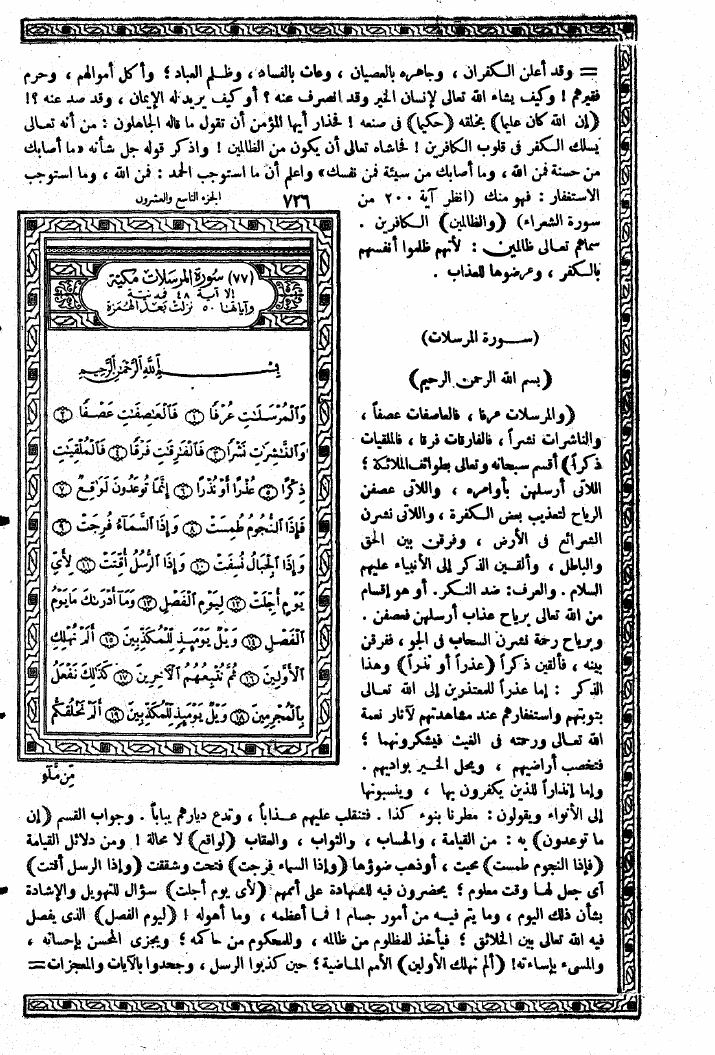 = وقد أعلن الكفران ، وجاهره بالعصيان ، وعاث بالفساد ، وظلم العباد ؛ وأكل أموالهم ، وحرم
فقيرهم ! وكيف يشاء الله تعالى لإنسان الخير وقد انصرف عنه ؟ أو كيف يريد له الإيمان ، وقد صد عنه ؟!
(إن الله كان عليما) بخلقه (حكيما) فى صنعه ! فحذار أيها المؤمن أن تقول ما قاله الجاهلون : من أنه تعالى
يسلك الكفر فى قلوب الكافرين ! فحاشاه تعالى أن يكون من الظالمين ! واذكر قوله جل شأنه «ما أصابك
من حسنة فمن الله ، وما أصابك من سيئة فمن نفسك» واعلم أن ما استوجب الحمد : فمن الله ، وما استوجب
الاستغفار : فهو منك (انظر آية ٢٠٠ من
سورة الشعراء) (والظالمين) الكافرين .
سماهم تعالى ظالمين : لأنهم ظلموا أنفسهم
بالكفر ، وعرضوها للعذاب .
(سورة المرسلات)
(بسم الله الرحمن الرحيم)
(والمرسلات عرفا ، فالعاصفات عصفاً ،
والناشرات نشراً ، فالفارقات فرقا ، فالملقيات
ذكراً) أقسم سبحانه وتعالى بطوائف الملائكة ؛
اللاتى أرسلهن بأوامره ، واللاتى عصفن
الرياح لتعذيب بعض الكفرة ، واللاتى نشرن
الشرائع فى الأرض ، وفرقن بين الحق
والباطل ، وألقين الذكر إلى الأنبياء عليهم
السلام . والعرف: ضد النكر. أو هو إقسام
من الله تعالى برياح عذاب أرسلهن فعصفن .
وبرياح رحمة نشرن السحاب فى الجو ، ففرقن
بينه ، فألقين ذكراً (عذراً أو نذراً) وهذا
الذكر : إما عذراً للمعتذرين إلى الله تعالى
بتوبتهم واستغفارهم عند مشاهدتهم لآثار نعمة
الله تعالى ورحمته فى الغيث فيشكرونها ؛
فتخصب أراضيهم ، ويحل الخير بواديهم .
وإما إنذاراً للذين يكفرون بها ، وينسبونها
إلى الأنواء ويقولون : مطرنا بنوء كذا . فتنقلب عليهم عذاباً ، وتدع ديارهم يباباً . وجواب القسم (إن
ما توعدون) به : من القيامة ، والحساب ، والثواب ، والعقاب (لواقع) لا محالة ! ومن دلائل القيامة
(فإذا النجوم طمست) محيت ، أو ذهب ضوؤها (وإذا السماء فرجت) فتحت وشققت (وإذا الرسل أقتت)
أى جعل لها وقت معلوم ؛ يحضرون فيه للشهادة على أممهم (لأى يوم أجلت) سؤال للتهويل والإشادة
بشأن ذلك اليوم ، وما يتم فيه من أمور جسام ! فما أعظمه ، وما أهوله ! (ليوم الفصل) الذى يفصل
فيه الله تعالى بين الخلائق ؛ فيأخذ للمظلوم من ظالمه ، وللمحكوم من حاكمه ؛ ويجزى المحسن بإحسانه ،
والمسىء بإساءته! (ألم نهلك الأولين) الأمم الماضية ؛ حين كذبوا الرسل ، وجحدوا بالآيات والمعجزات =
٧٢٦ الجزء التاسع والعشرون
(٧٧) سورة المرسلات مكية
إلا آية ٤٨ فمدنية
وآياتها ٥٠ نزلت بعد الهمزة
بسم الله الرحمن الرحيم
وَٱلْمُرْسَلَٰتِ عُرْفًا ١ فَٱلْعَٰصِفَٰتِ عَصْفًا ٢
وَٱلنَّٰشِرَٰتِ نَشْرًا ٣ فَٱلْفَٰرِقَٰتِ فَرْقًا ٤ فَٱلْمُلْقِيَٰتِ
ذِكْرًا ٥ عُذْرًا أَوْ نُذْرًا ٦ إِنَّمَا تُوعَدُونَ لَوَٰقِعٌ ٧
فَإِذَا ٱلنُّجُومُ طُمِسَتْ ٨ وَإِذَا ٱلسَّمَآءُ فُرِجَتْ ٩
وَإِذَا ٱلْجِبَالُ نُسِفَتْ ١٠ وَإِذَا ٱلرُّسُلُ أُقِّتَتْ ١١ لِأَيِّ
يَوْمٍ أُجِّلَتْ ١٢ لِيَوْمِ ٱلْفَصْلِ ١٣ وَمَآ أَدْرَىٰكَ مَا يَوْمُ
ٱلْفَصْلِ ١٤ وَيْلٌ يَوْمَئِذٍ لِّلْمُكَذِّبِينَ ١٥ أَلَمْ نُهْلِكِ
ٱلْأَوَّلِينَ ١٦ ثُمَّ نُتْبِعُهُمُ ٱلْآخِرِينَ ١٧ كَذَٰلِكَ نَفْعَلُ
بِٱلْمُجْرِمِينَ ١٨ وَيْلٌ يَوْمَئِذٍ لِّلْمُكَذِّبِينَ ١٩ أَلَمْ نَخْلُقكُّم
مِّن مَّآءٍ